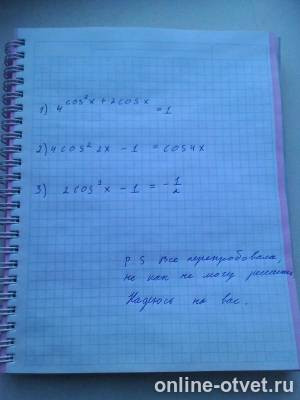 1) 4^cos²x + 2cosx = 1
2) 4cos² 2x - 1 = cos4x
3) 2cos³x - 1 = -1/2
p.s Все перепробовала,
не как не могу решить
Надеюсь на вас.
online-otvet.ru